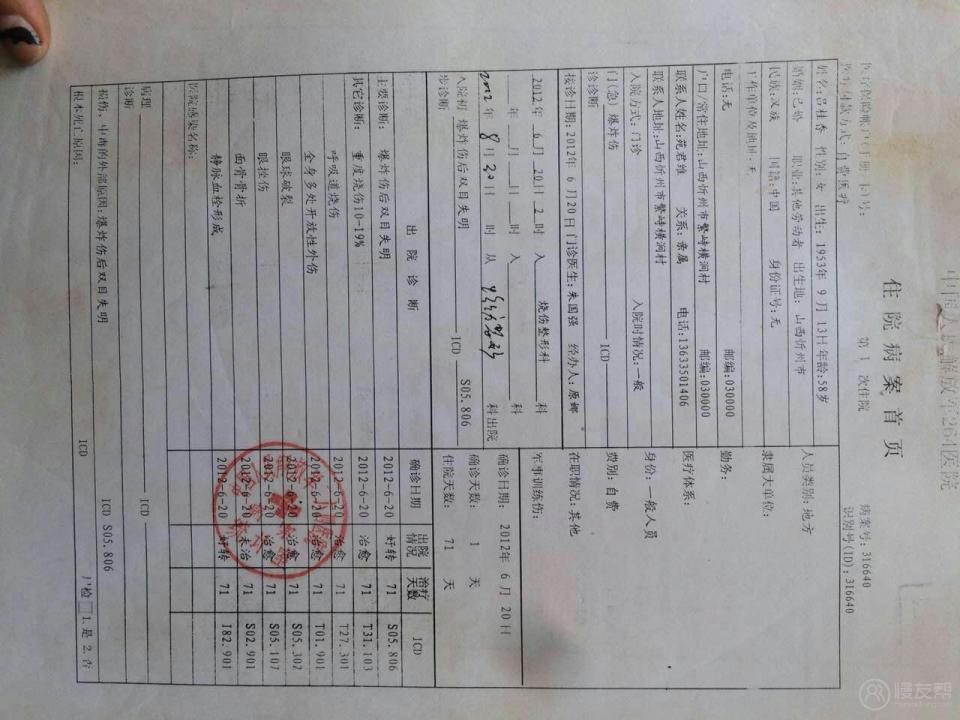 中国人民解放军264医院
住院病案首页
病案号: 316640
第1次住院
识别号(ID): 316640
医疗付款方式: 自费医疗
姓名: 吕桂香 性别: 女 出生: 1953年 9 月 13日 年龄: 58岁
人员类别: 地方
婚姻: 已婚 职业: 其他劳动者 出生地: 山西忻州市
隶属大单位:
民族: 汉族 国籍: 中国 身份证号: 无
工作单位及地址: 无
勤务:
电话: 无 邮编: 030000
医疗体系:
户口/常住地址: 山西忻州市繁峙横涧村 邮编: 030000
身份: 一般人员
联系人姓名: 苑君维 关系: 亲属 电话: 13633501406
费别: 自费
联系人地址: 山西忻州市繁峙横涧村
在职情况: 其他
入院方式: 门诊 入院时情况: 一般
军事训练伤:
门(急) 爆炸伤
诊诊断 ICD
接诊日期: 2012年 6 月 20日 门诊医生: 朱国强 经办人: 原娜
2012年 6 月 20日 2 时 入 烧伤整形科 科
确诊日期: 2012年 6 月 20日
年 月 日 时 入 科
确诊天数: 1 天
2012年 8 月 30日 时 从 科出院
住院天数: 71 天
入院初 爆炸伤后双目失明
步诊断 ICD S05.806
出 院 诊 断 确诊日期 出院情况 治疗天数 ICD
主要诊断: 爆炸伤后双目失明 2012-6-20 好转 71 S05.806
其它诊断: 重度烧伤10-19% 2012-6-20 治愈 71 T31.103
呼吸道烧伤 2012-6-20 治愈 71 T27.301
全身多处开放性外伤 2012-6-20 治愈 71 T01.901
眼球破裂 2012-6-20 治愈 71 S05.302
眼挫伤 2012-6-20 治愈 71 S05.107
面骨骨折 2012-6-20 未治 71 S02.901
静脉血栓形成 2012-6-20 好转 71 I82.901
医院感染名称:
病理
诊断: ICD
损伤、中毒的外部原因: 爆炸伤后双目失明 ICD S05.806
根本死亡原因: ICD 尸检 □ 1.是 2.否